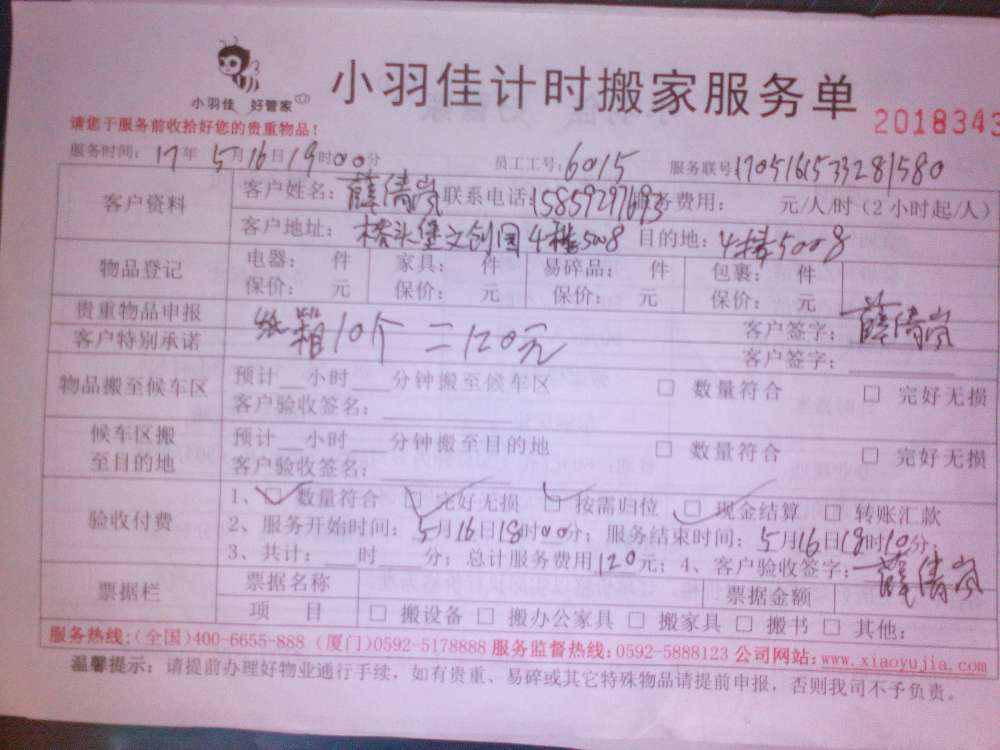 小羽佳 好管家
小羽佳计时搬家服务单
2018343
请您于服务前收拾好您的贵重物品！
服务时间：17年5月16日19时00分 员工工号：6015 服务联号1705161533281580
客户资料
客户姓名：薛倩岚 联系电话：15859297693 务费用： 元/人/时（2小时起/人）
客户地址： 桥头堡文创园4楼5008 目的地：4楼5008
物品登记
电器： 件 家具： 件 易碎品： 件 包裹： 件
保价： 元 保价： 元 保价： 元 保价： 元
贵重物品申报 客户签字：薛倩岚
纸箱10个=120元
客户特别承诺 客户签字：
物品搬至候车区
预计__小时___分钟搬至候车区 □ 数量符合 □ 完好无损
客户验收签名：
候车区搬至目的地
预计__小时___分钟搬至目的地 □ 数量符合 □ 完好无损
客户验收签名：
验收付费
1、□ 数量符合 □ 完好无损 □ 按需归位 □ 现金结算 □ 转账汇款
2、服务开始时间：5月16日18时00分；服务结束时间：5月16日18时10分；
3、共计：___时___分；总计服务费用120元；4、客户验收签字：薛倩岚
票据栏
票据名称 票据金额
项 目 □ 搬设备 □ 搬办公家具 □ 搬家具 □ 搬书 □ 其他：
服务热线：（全国）400-6655-888（厦门）0592-5178888 服务监督热线：0592-5888123 公司网站：www.xiaoyujia.com
温馨提示：请提前办理好物业通行手续，如有贵重、易碎或其它特殊物品请提前申报，否则我司不予负责。